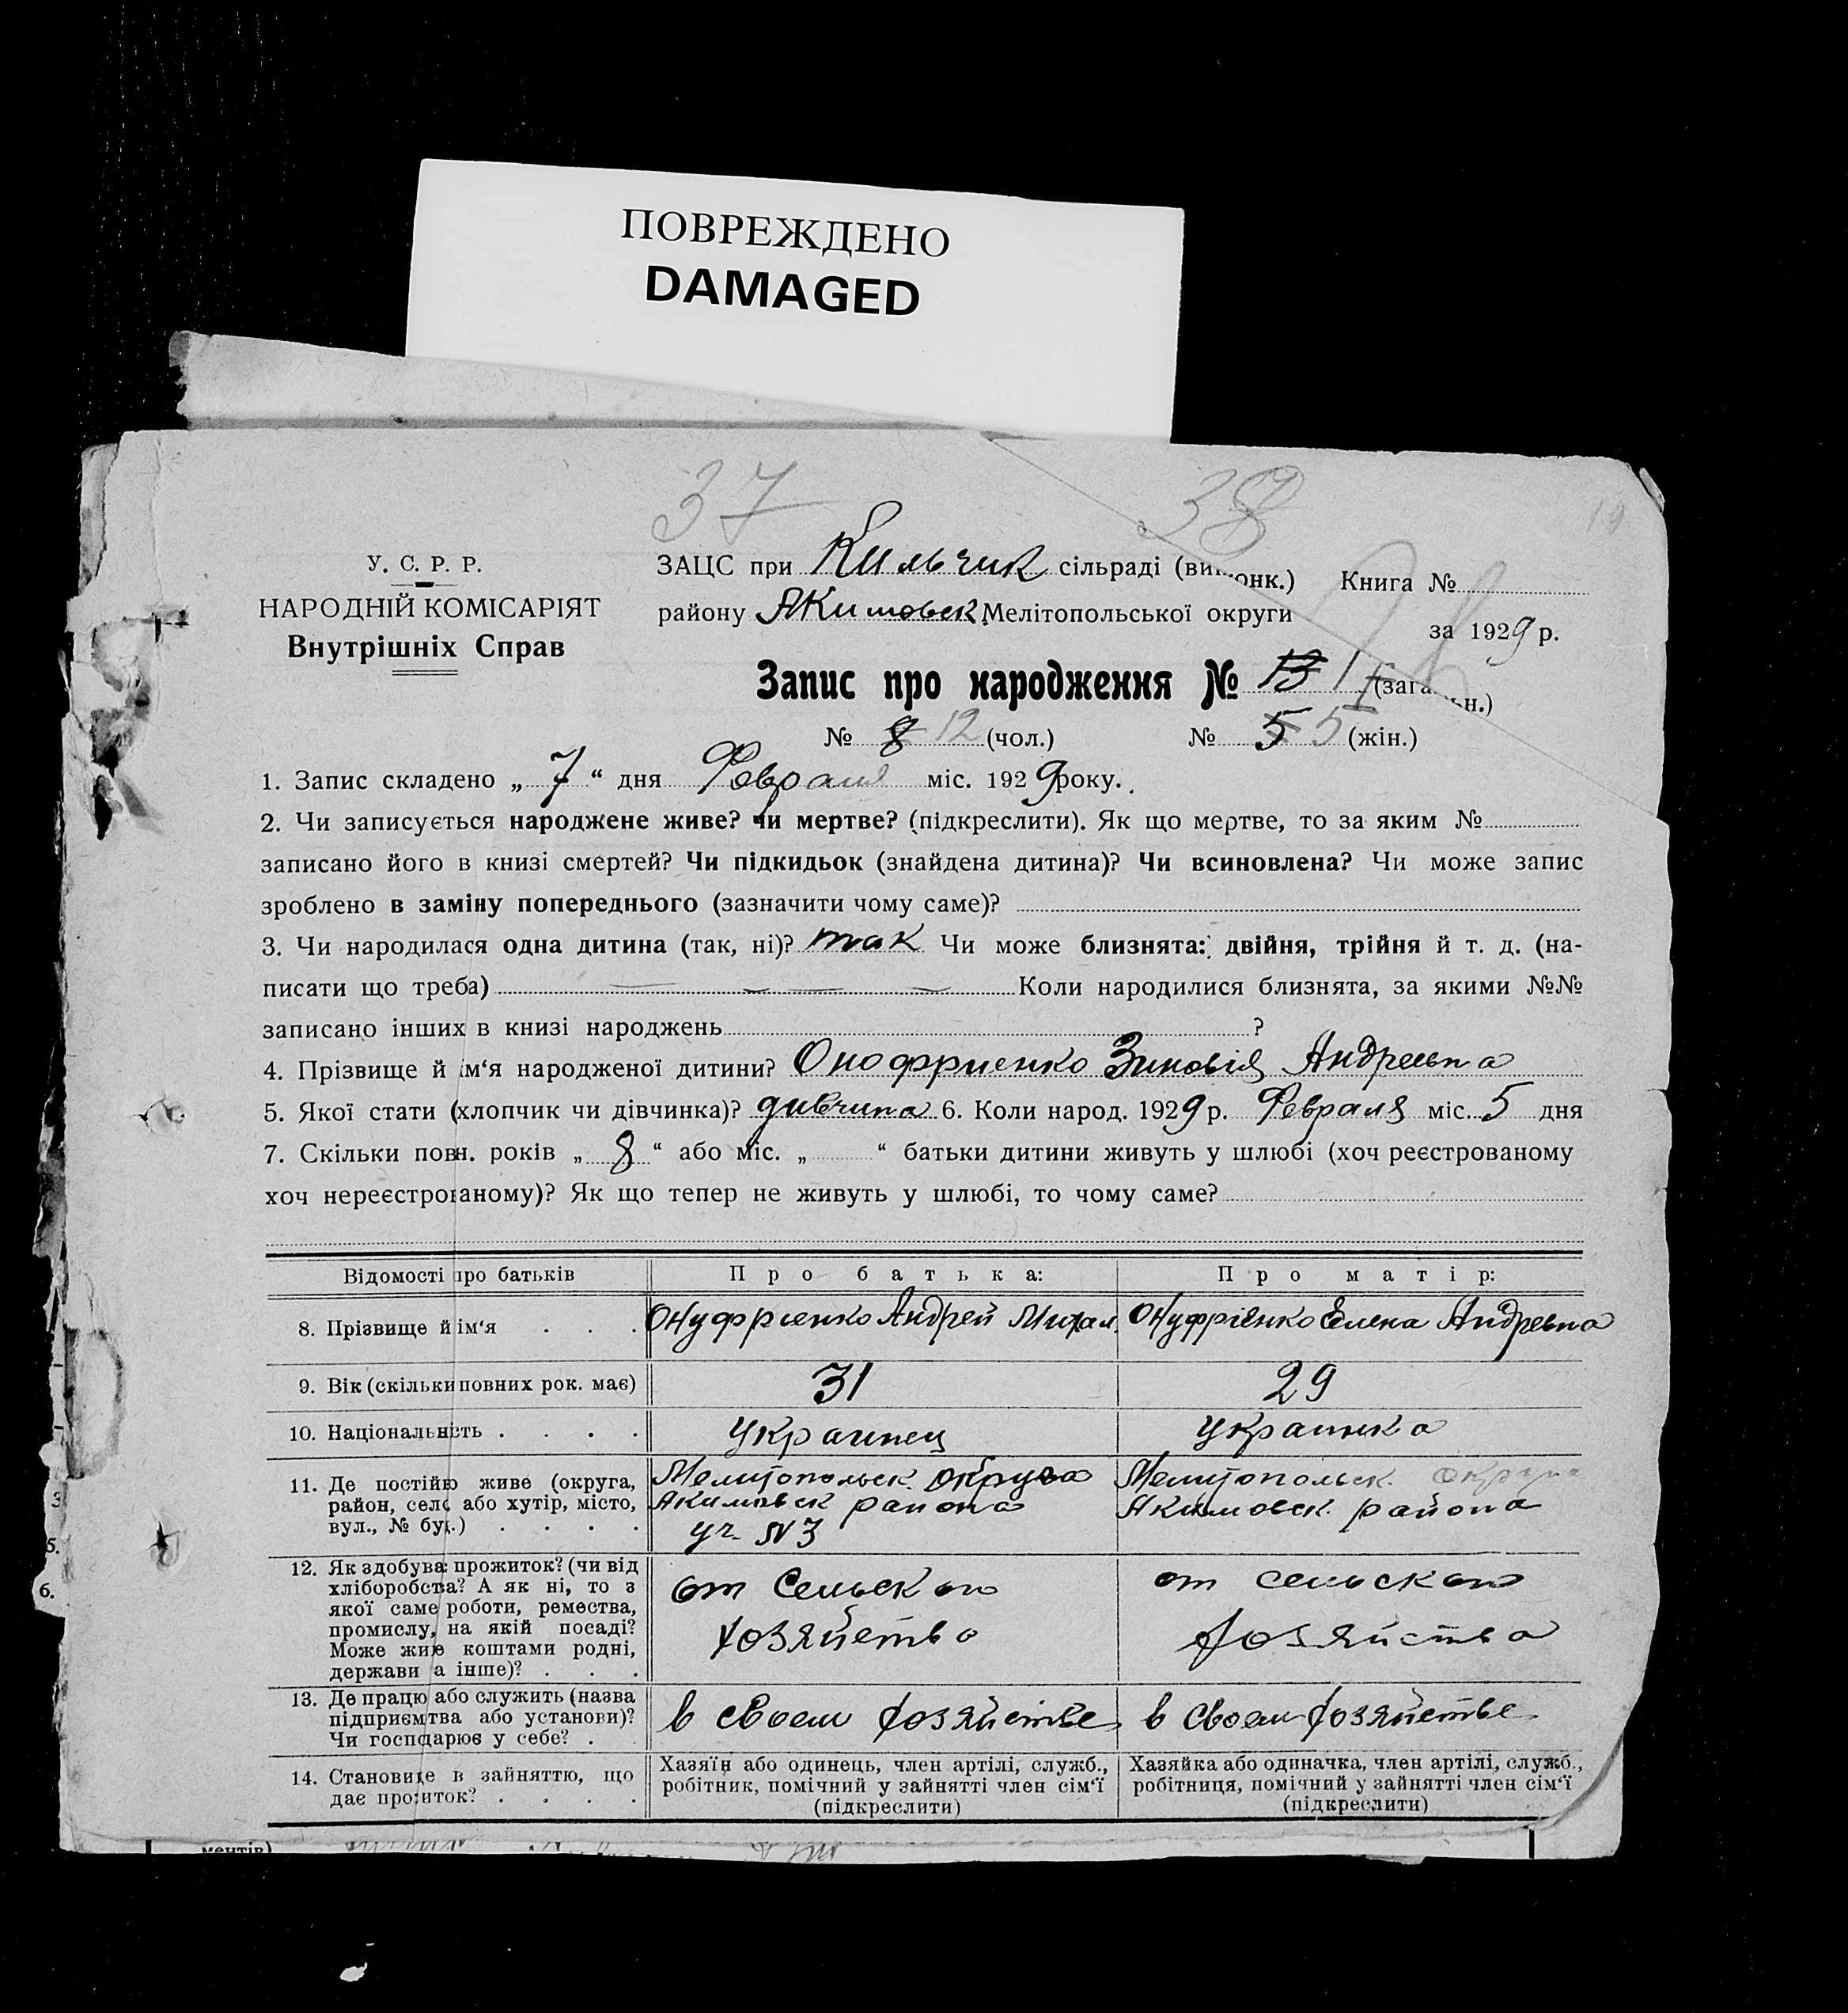 ПОВРЕЖДЕНО
DAMAGED
37 38 19
У. С. Р. Р.
НАРОДНІЙ КОМІСАРІЯТ
Внутрішніх Справ
ЗАЦС при Кильчик сільраді (виконк.) Книга №
району Якимовск. Мелітопольської округи
за 1929 р.
Запис про народження № 13 (загальн.)
№ 8 12 (чол.) № 5 5 (жін.)
1. Запис складено „ 7 “ дня Февраля міс. 1929 року.
2. Чи записується народжене живе? чи мертве? (підкреслити). Як що мертве, то за яким №
записано його в книзі смертей? Чи підкидьок (знайдена дитина)? Чи всиновлена? Чи може запис
зроблено в заміну попереднього (зазначити чому саме)?
3. Чи народилася одна дитина (так, ні)? так Чи може близнята: двійня, трійня й т. д. (на-
писати що треба) Коли народилися близнята, за якими №№
записано інших в книзі народжень ?
4. Прізвище й ім‘я народженої дитини? Онофриенко Зиновія Андреевна
5. Якої стати (хлопчик чи дівчинка)? дивчина 6. Коли народ. 1929 р. Февраля міс. 5 дня
7. Скільки повн. років „ 8 “ або міс. „ “ батьки дитини живуть у шлюбі (хоч реєстрованому
хоч нереєстрованому)? Як що тепер не живуть у шлюбі, то чому саме?
Відомості про батьків Про батька: Про матір:
8. Прізвище й ім‘я . . . Онуфриенко Андрей Михал. Онуфріенко Елена Андревна
9. Вік (скільки повних рок. має) 31 29
10. Національність . . . . Украинец Украинка
11. Де постійно живе (округа,
район, село або хутір, місто,
вул., № буд.) . . . .
Мелитопольск. округа
Акимовск района
уч. №3
Мелитопольск. округа
Акимовск. района
12. Як здобуває прожиток? (чи від
хліборобства? А як ні, то з
якої саме роботи, ремества,
промислу, на якій посаді?
Може живе коштами родні,
держави а інше)? . . .
от Сельского
хозяйства
от сельского
хозяйства
13. Де працює або служить (назва
підприємтва або установи)?
Чи господарює у себе? .
в своем хозяйстве в своем хозяйстве
14. Становище в зайняттю, що
дає прожиток? . . . .
Хазяїн або одинець, член артілі, служб.,
робітник, помічний у зайнятті член сім‘ї
(підкреслити)
Хазяйка або одиначка, член артілі, служб.,
робітниця, помічний у зайнятті член сім‘ї
(підкреслити)
ментів)
3
5.
6.